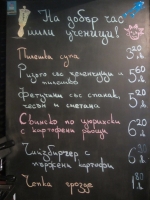 На добър час
мили ученици!
Пилешка супа 3 20 лв
Ризото със зеленчуци и пилешко 5 60 лв
Фетучини със спанак, чесън и сметана 5 20 лв
Свинско по цюрихски с картофени рьощи 6 20 лв
Чийзбургер с пържени картофи 6 20 лв
Чепка грозде 1 80 лв